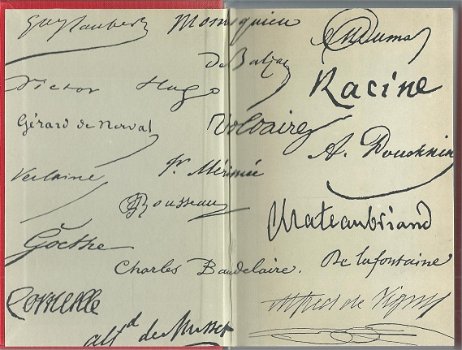 Gve flaubert
Montesquieu
Al Dumas
de Balzac
Victor Hugo
Racine
Gérard de Nerval
Voltaire
A. Pouchkine
Verlaine
Pr Mérimée
JJRousseau
Chateaubriand
Goethe
Charles Baudelaire.
De lafontaine
Corneille
Alfred de Vigny
alfd de Musset